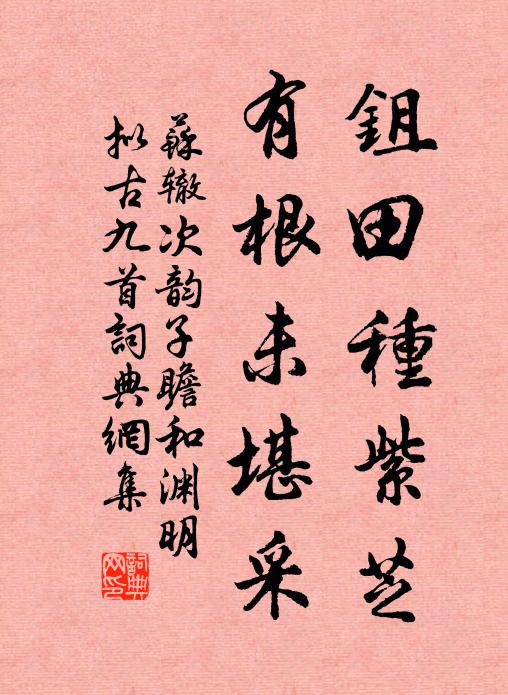 鉏田種紫芝
有根未堪采
蘇辙次韵子瞻和渊明
拟古九首詞典網集
詞典
网印